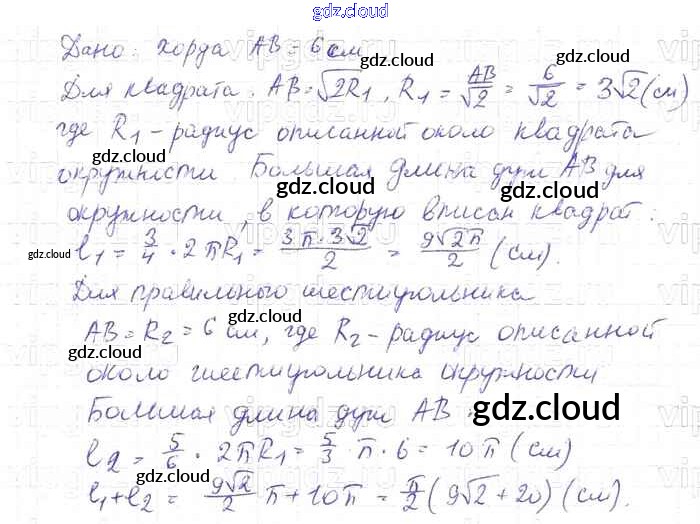 gdz.cloud
Дано: хорда AB = 6 см
gdz.cloud
Для квадрата: AB = √2R₁, R₁ = AB/√2 = 6/√2 = 3√2 (см)
где R₁ - радиус описанной около квадрата
окружности. Большая длина дуги AB для
gdz.cloud
окружности, в которую вписан квадрат:
gdz.cloud
l₁ = 3/4 · 2πR₁ = 3π·3√2/2 = 9√2π/2 (см).
gdz.cloud
Для правильного шестиугольника
AB = R₂ = 6 см, где R₂ - радиус описанной
gdz.cloud
около шестиугольника окружности
Большая длина дуги AB:
gdz.cloud
l₂ = 5/6 · 2πR₁ = 5/3 π · 6 = 10π (см)
gdz.cloud
l₁ + l₂ = 9√2/2 π + 10π = π/2 (9√2 + 20) (см).